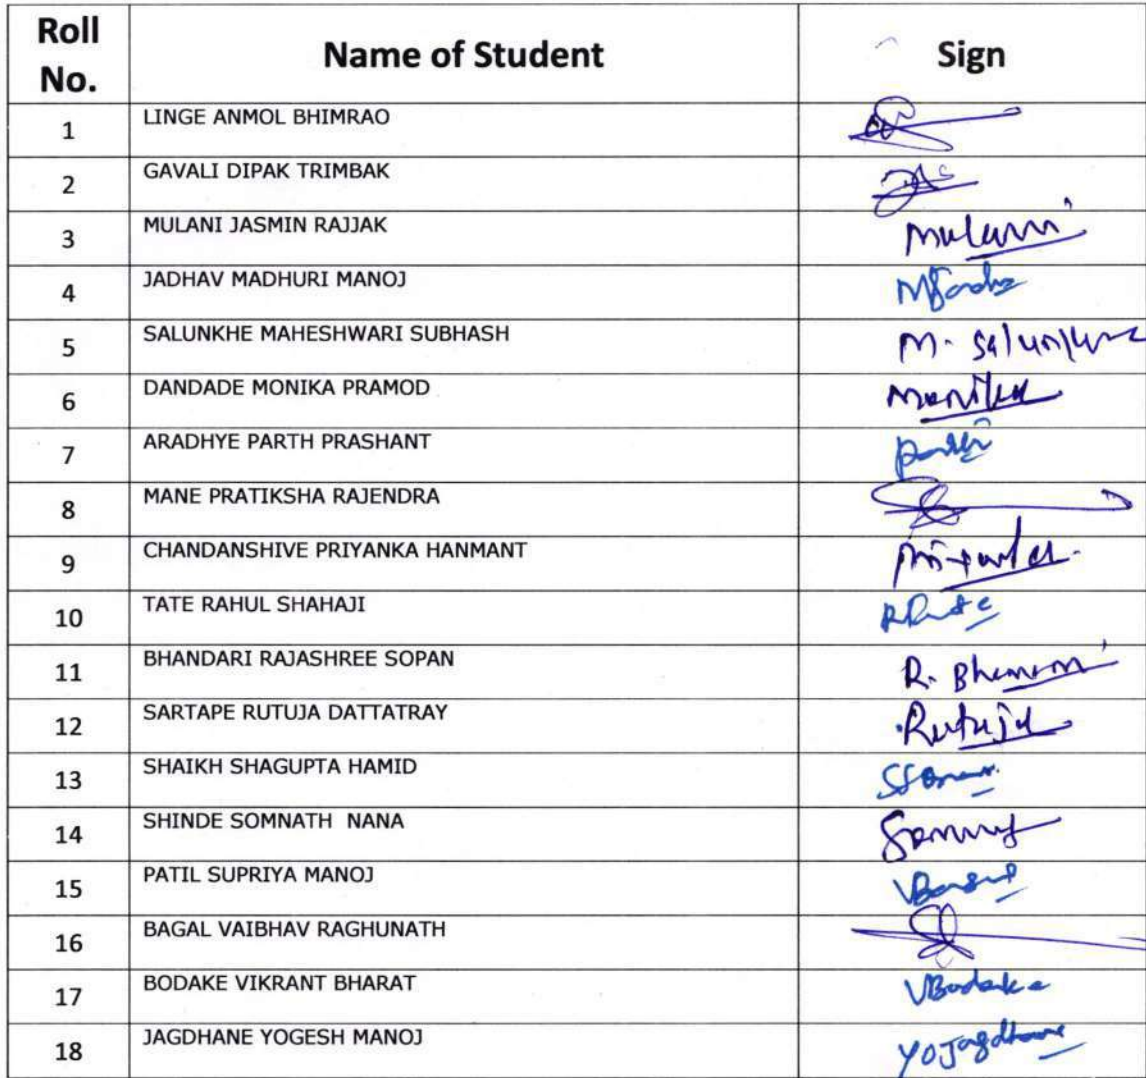 Roll No. Name of Student Sign
1 LINGE ANMOL BHIMRAO
2 GAVALI DIPAK TRIMBAK
3 MULANI JASMIN RAJJAK Mulani
4 JADHAV MADHURI MANOJ
5 SALUNKHE MAHESHWARI SUBHASH M. Salunkhe
6 DANDADE MONIKA PRAMOD Monika
7 ARADHYE PARTH PRASHANT
8 MANE PRATIKSHA RAJENDRA
9 CHANDANSHIVE PRIYANKA HANMANT
10 TATE RAHUL SHAHAJI
11 BHANDARI RAJASHREE SOPAN
12 SARTAPE RUTUJA DATTATRAY Rutuja
13 SHAIKH SHAGUPTA HAMID
14 SHINDE SOMNATH NANA
15 PATIL SUPRIYA MANOJ
16 BAGAL VAIBHAV RAGHUNATH
17 BODAKE VIKRANT BHARAT VBodake
18 JAGDHANE YOGESH MANOJ YOJagdhane